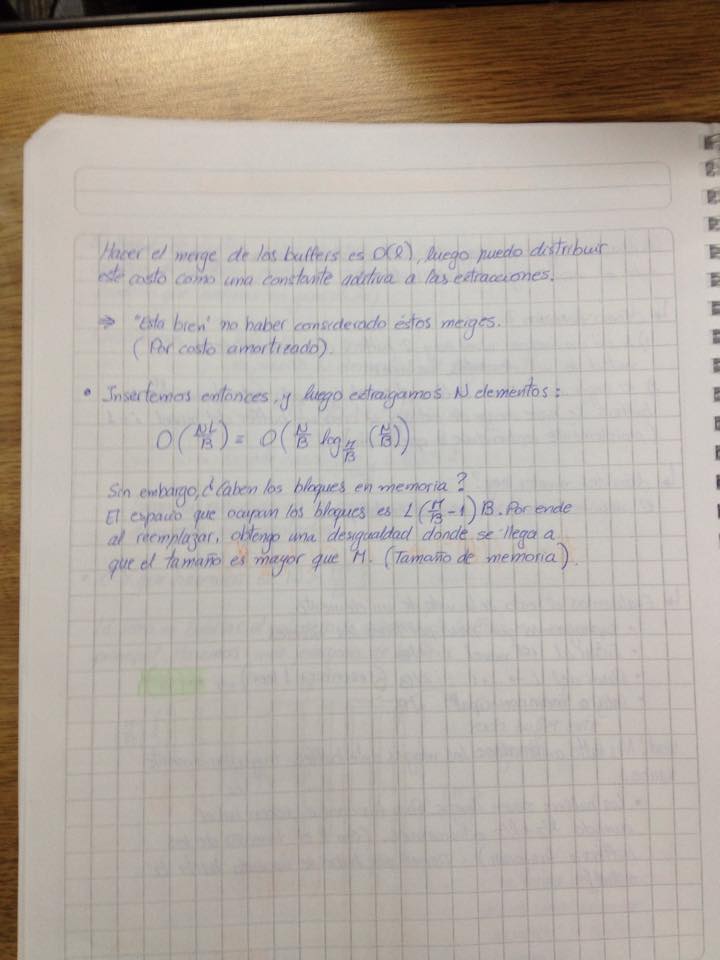 Hacer el merge de los buffers es O(l), luego puedo distribuir
este costo como una constante aditiva a las extracciones.
⇒ "Esta bien" no haber considerado éstos merges.
(Por costo amortizado).
• Insertemos entonces, y luego extraigamos N elementos:
O(NL/B) = O(N/B log_{M/B} (N/B))
Sin embargo, ¿Caben los bloques en memoria?
El espacio que ocupan los bloques es L(M/B - 1)B. Por ende
al reemplazar, obtengo una desigualdad donde se llega a
que el tamaño es mayor que M. (Tamaño de memoria).